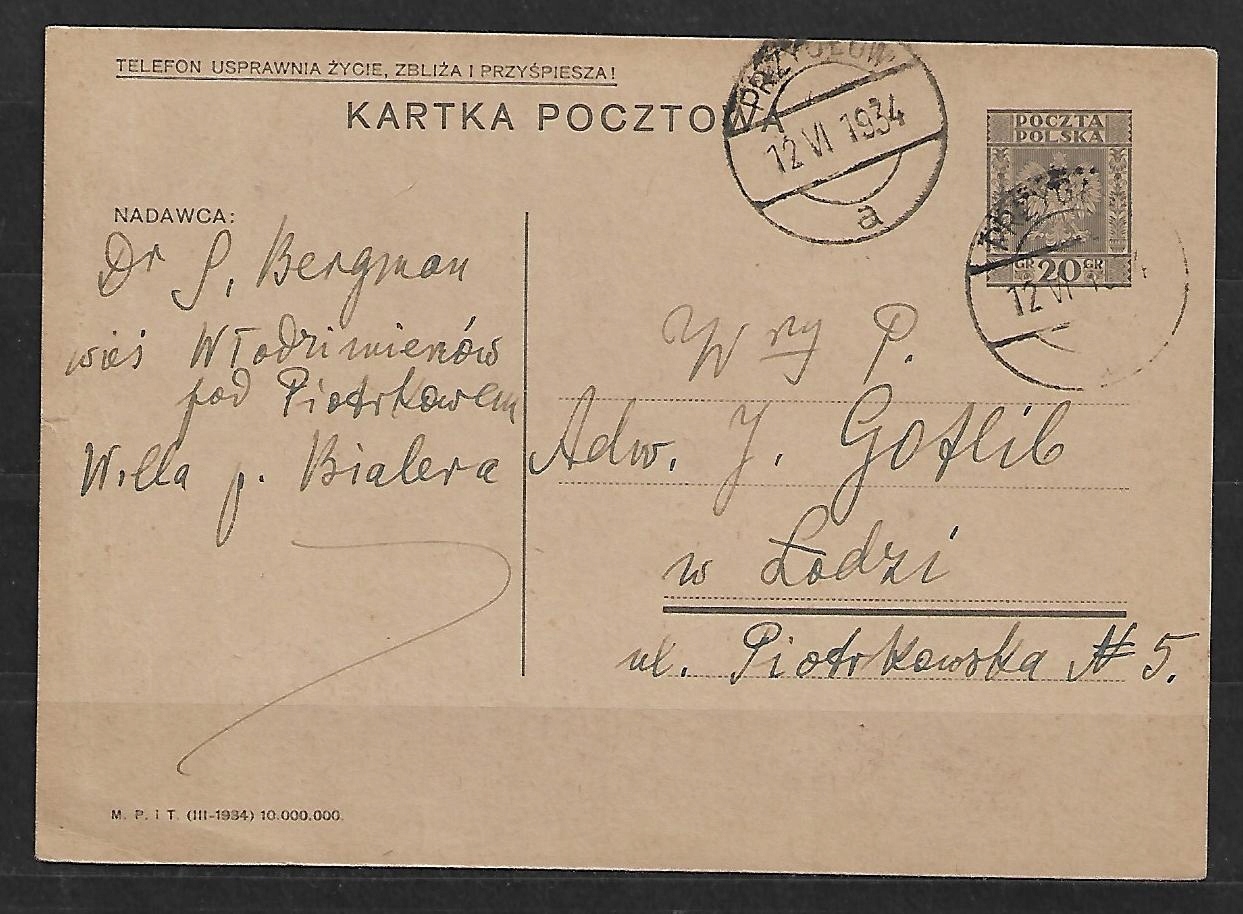 TELEFON USPRAWNIA ŻYCIE, ZBLIŻA I PRZYŚPIESZA!
KARTKA POCZTOWA
12 VI 1934
a
POCZTA
POLSKA
GR 20 GR
12 VI
NADAWCA:
Dr S. Bergman
wieś Włodzimierzów
pod Piotrkowem
Willa p. Bialera
W ny P.
Adw. J. Gotlib
w Łodzi
ul. Piotrkowska № 5.
M. P. i T. (III-1934) 10.000.000.